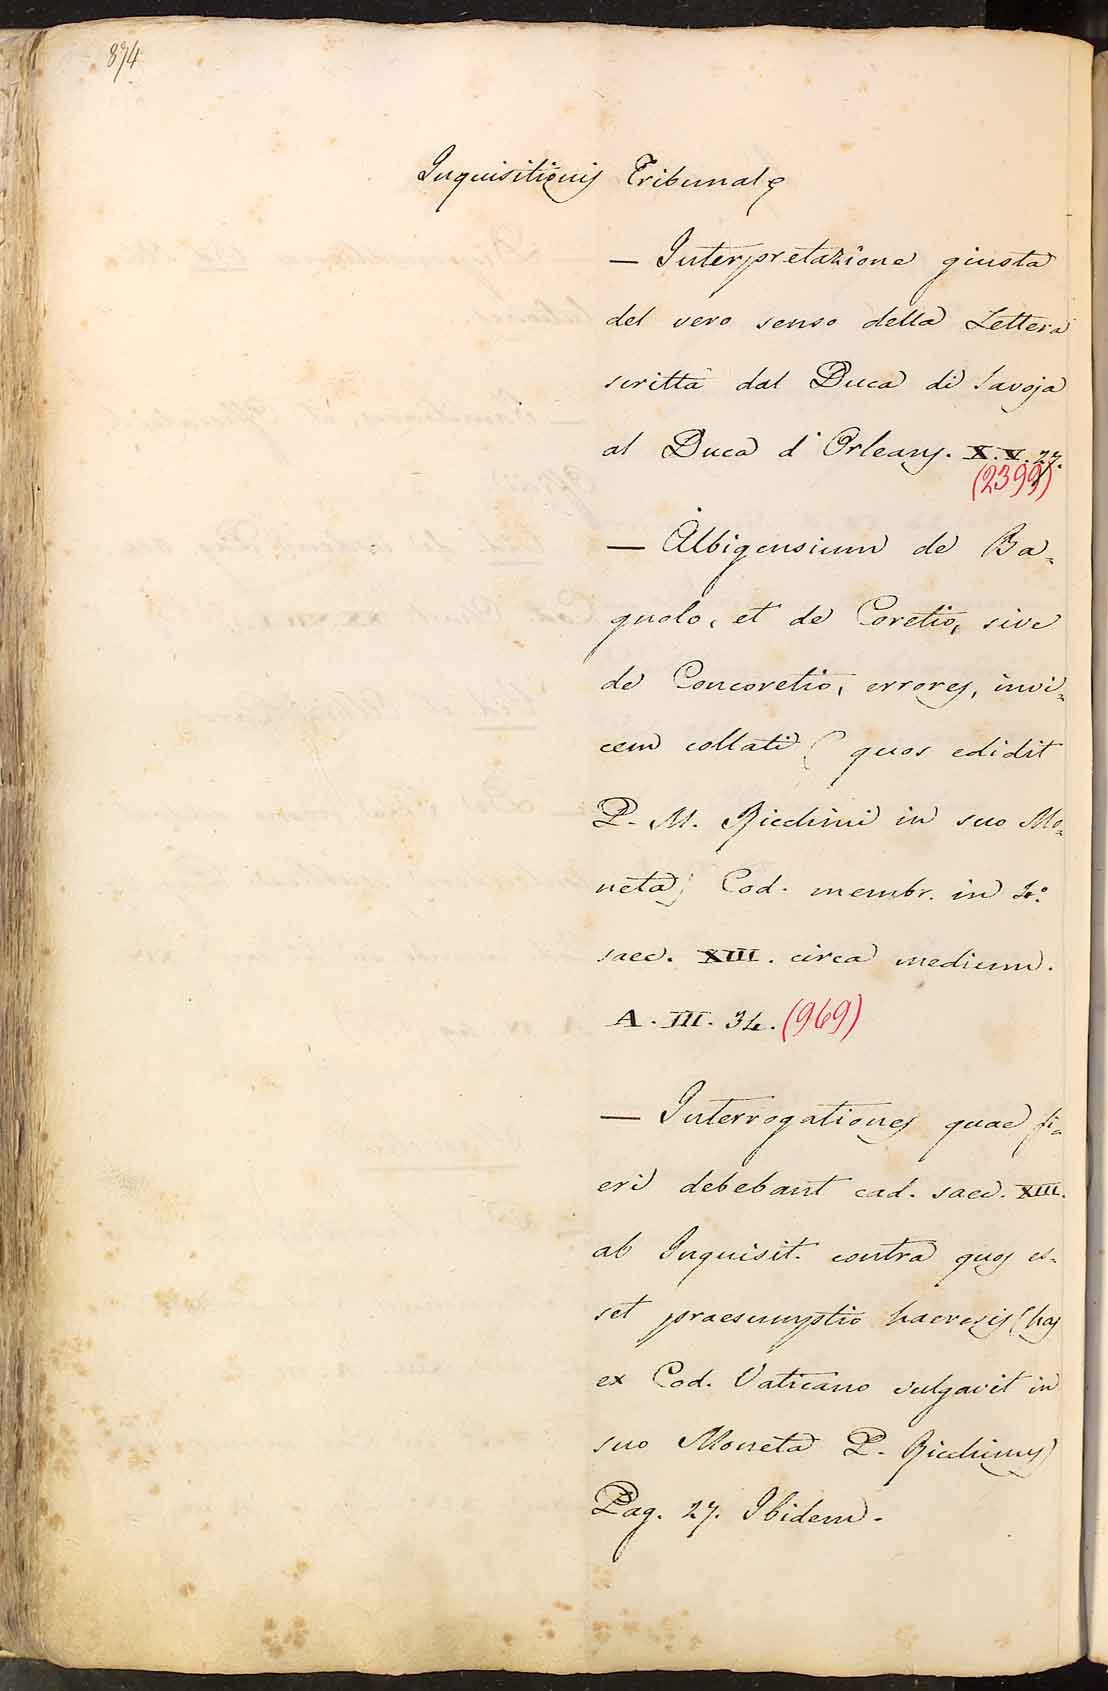 874
Inquisitionis Tribunale
— Interpretazione giusta
del vero senso della Lettera
scritta dal Duca di Savoja
al Duca d'Orleans. X.V.27.
(2399)
— Albigensium de Ba=
gnolo, et de Coretio, sive
de Concoretio, errores, invi=
cem collati (quos edidit
P. M. Ricchini in suo Mo=
neta) Cod. membr. in 4.º
saec. XIII. circa medium.
A. III. 34. (969)
— Interrogationes quae fi=
eri debebant ead. saec. XIII.
ab Inquisit. contra quos es=
set praesumptio haeresis (has
ex Cod. Vaticano vulgavit in
suo Moneta P. Ricchinus)
Pag. 27. Ibidem.